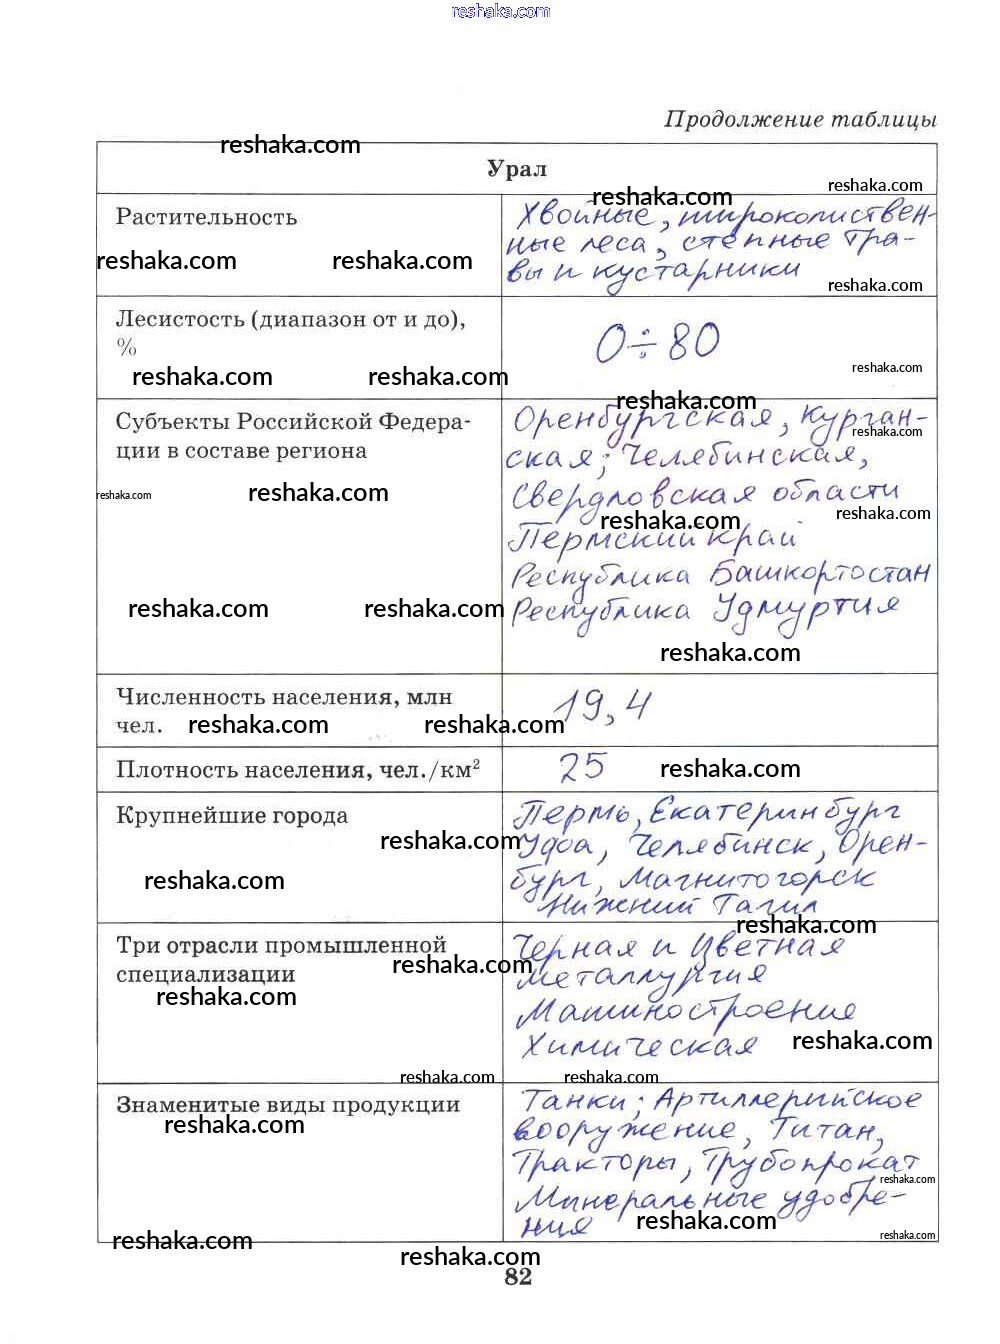 reshaka.com
Продолжение таблицы
reshaka.com
Урал
reshaka.com
reshaka.com
Растительность
Хвойные, широколиствен-
ные леса, степные тра-
вы и кустарники
reshaka.com reshaka.com
reshaka.com
Лесистость (диапазон от и до),
%
0÷80
reshaka.com reshaka.com reshaka.com
reshaka.com
Субъекты Российской Федера-
ции в составе региона
Оренбургская, Курган-
reshaka.com
ская, Челябинская,
Свердловская области
reshaka.com reshaka.com reshaka.com
reshaka.com
Пермский край
Республика Башкортостан
Республика Удмуртия
reshaka.com reshaka.com
reshaka.com
Численность населения, млн
чел.
19,4
reshaka.com reshaka.com
Плотность населения, чел./км²
25
reshaka.com
Крупнейшие города
Пермь, Екатеринбург
Уфа, Челябинск, Орен-
бург, Магнитогорск
Нижний Тагил
reshaka.com
reshaka.com
reshaka.com
Три отрасли промышленной
специализации
Черная и цветная
металлургия
Машиностроение
Химическая
reshaka.com
reshaka.com
reshaka.com
reshaka.com reshaka.com
Знаменитые виды продукции
Танки, Артиллерийское
вооружение, Титан,
Тракторы, Трубопрокат
Минеральные удобре-
ния
reshaka.com
reshaka.com
reshaka.com
reshaka.com
reshaka.com
reshaka.com
82